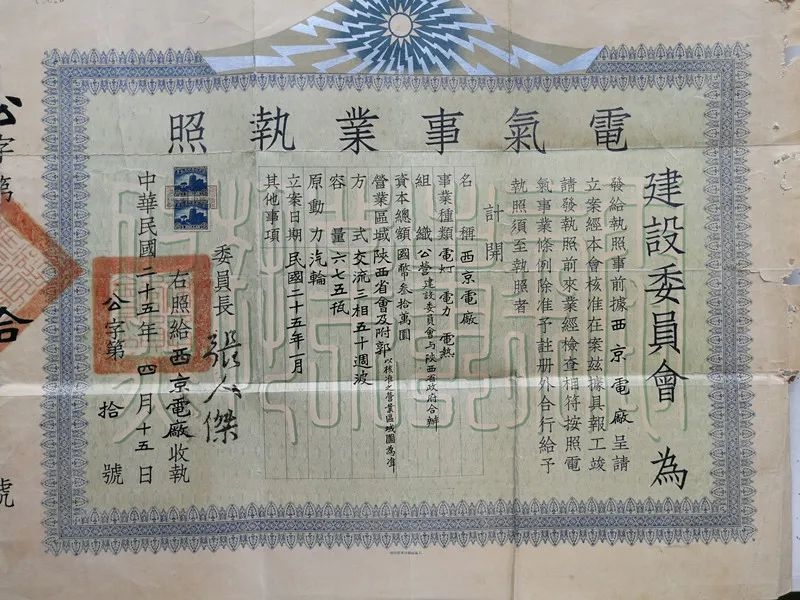 電氣事業執照
建設委員會 為
發給執照事前據西京電廠呈請
立案經本會核准在案茲據具報工竣
請發執照前來業經檢查相符按照電
氣事業條例除准予註冊外合行給予
執照須至執照者
計開
名稱 西京電廠
事業種類 電灯 電力 電熱
組織 公營建設委員會与陝西省政府合辦
資本總額 國幣叁拾萬圓
營業區域 陝西省會及附郭以核准之營業區域圖為準
方式 交流三相五十週波
容量 六七五瓩
原動力 汽輪
立案日期 民國二十五年一月
其他事項
委員長 張人傑
右照給西京電廠收執
中華民國二十五年四月十五日
公字第拾號
公字第
拾
號